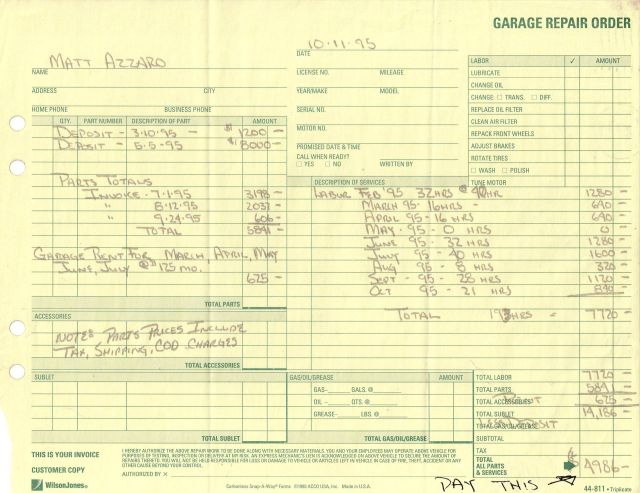 GARAGE REPAIR ORDER
10-11-95
DATE
MATT AZZARO
NAME
LICENSE NO. MILEAGE
ADDRESS CITY
YEAR/MAKE MODEL
HOME PHONE BUSINESS PHONE
SERIAL NO.
MOTOR NO.
PROMISED DATE & TIME
CALL WHEN READY?
☐ YES ☐ NO WRITTEN BY
LABOR ✓ AMOUNT
LUBRICATE
CHANGE OIL
CHANGE: ☐ TRANS. ☐ DIFF.
REPLACE OIL FILTER
CLEAN AIR FILTER
REPACK FRONT WHEELS
ADJUST BRAKES
ROTATE TIRES
☐ WASH ☐ POLISH
TUNE MOTOR
QTY. PART NUMBER DESCRIPTION OF PART AMOUNT
DEPOSIT - 3-10-95 - $1200 -
DEPOSIT - 5-5-95 $8000-
PARTS TOTALS
INVOICE - 7-1-95 3198 -
" 8-12-95 2037 -
" 9-24-95 606 -
TOTAL 5841 -
GARAGE RENT FOR MARCH, APRIL, MAY
JUNE, JULY @ $125 MO.
625 -
TOTAL PARTS
ACCESSORIES
NOTE: PARTS PRICES INCLUDE
TAX, SHIPPING, COD CHARGES
TOTAL ACCESSORIES
DESCRIPTION OF SERVICES
LABOR FEB '95 32 HRS @ 40/HR 1280 -
MARCH 95- 16 HRS - 640 -
APRIL 95 - 16 HRS 640 -
MAY - 95 - 0 HRS 0 -
JUNE 95 - 32 HRS 1280 -
JULY 95 - 40 HRS 1600 -
AUG 95 - 8 HRS 320 -
SEPT - 95 - 28 HRS 1120 -
OCT 95 - 21 HRS 840 -
TOTAL 193 HRS = 7720 -
SUBLET
TOTAL SUBLET
GAS/OIL/GREASE AMOUNT
GAS- GALS. @
OIL - QTS. @
GREASE- LBS. @
TOTAL GAS/OIL/GREASE
TOTAL LABOR 7720 -
TOTAL PARTS 5841 -
TOTAL ACCESSORIES RENT 625 -
TOTAL SUBLET 14,186 -
TOTAL GAS/OIL/GREASE LESS DEPOSIT
SUBTOTAL
TAX
TOTAL
ALL PARTS
& SERVICES $4986-
THIS IS YOUR INVOICE
CUSTOMER COPY
WilsonJones®
I HEREBY AUTHORIZE THE ABOVE REPAIR WORK TO BE DONE ALONG WITH NECESSARY MATERIALS. YOU AND YOUR EMPLOYEES MAY OPERATE ABOVE VEHICLE FOR
PURPOSES OF TESTING, INSPECTION OR DELIVERY AT MY RISK. AN EXPRESS MECHANIC'S LIEN IS ACKNOWLEDGED ON ABOVE VEHICLE TO SECURE THE AMOUNT OF
REPAIRS THERETO. YOU WILL NOT BE HELD RESPONSIBLE FOR LOSS OR DAMAGE TO VEHICLE OR ARTICLES LEFT IN VEHICLE IN CASE OF FIRE, THEFT, ACCIDENT OR ANY
OTHER CAUSE BEYOND YOUR CONTROL.
AUTHORIZED BY
Carbonless Snap-A-Way® Forms © 1993 ACCO USA, Inc. Made in U.S.A.
PAY THIS
44-811 • Triplicate